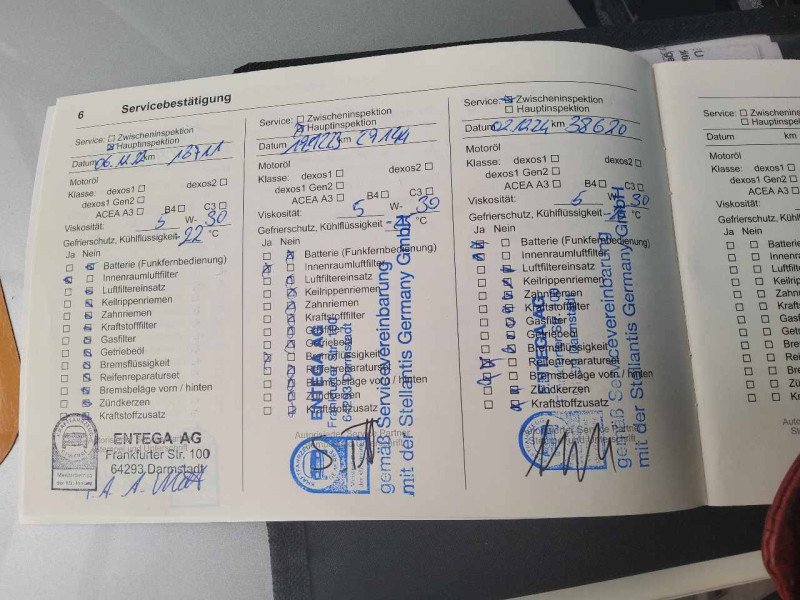 6 Servicebestätigung
Service: Zwischeninspektion
Hauptinspektion
Datum 06.12.22 km 13711
Motoröl
Klasse: dexos1 dexos2
dexos1 Gen2
ACEA A3 B4 C3
Viskosität: 5 W- 30
Gefrierschutz, Kühlflüssigkeit -22 °C
Ja Nein
Batterie (Funkfernbedienung)
Innenraumluftfilter
Luftfiltereinsatz
Keilrippenriemen
Zahnriemen
Kraftstofffilter
Gasfilter
Getriebeöl
Bremsflüssigkeit
Reifenreparaturset
Bremsbeläge vorn / hinten
Zündkerzen
Kraftstoffzusatz
ENTEGA AG
Frankfurter Str. 100
64293 Darmstadt
Service: Zwischeninspektion
Hauptinspektion
Datum km 29144
Motoröl
Klasse: dexos1 dexos2
dexos1 Gen2
ACEA A3 B4 C3
Viskosität: 5 W- 30
Gefrierschutz, Kühlflüssigkeit °C
Ja Nein
Batterie (Funkfernbedienung)
Innenraumluftfilter
Luftfiltereinsatz
Keilrippenriemen
Zahnriemen
Kraftstofffilter
Gasfilter
Getriebeöl
Bremsflüssigkeit
Reifenreparaturset
Bremsbeläge vorn / hinten
Zündkerzen
Kraftstoffzusatz
ENTEGA AG
64293 Darmstadt
gemäß Servicevereinbarung
mit der Stellantis Germany GmbH
Service: Zwischeninspektion
Hauptinspektion
Datum 02.12.24 km 38620
Motoröl
Klasse: dexos1 dexos2
dexos1 Gen2
ACEA A3 B4 C3
Viskosität: 5 W- 30
Gefrierschutz, Kühlflüssigkeit °C
Ja Nein
Batterie (Funkfernbedienung)
Innenraumluftfilter
Luftfiltereinsatz
Keilrippenriemen
Zahnriemen
Kraftstofffilter
Gasfilter
Getriebeöl
Bremsflüssigkeit
Reifenreparaturset
Bremsbeläge vorn / hinten
Zündkerzen
Kraftstoffzusatz
ENTEGA AG
gemäß Servicevereinbarung
mit der Stellantis Germany GmbH
Service: Zwischeninspektion
Hauptinspektion
Datum km
Motoröl
Klasse: dexos1
dexos1 Gen2
ACEA A3
Viskosität:
Gefrierschutz, Kühlflüssigkeit
Ja Nein